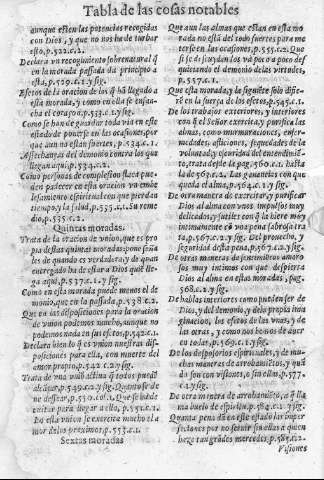 Tabla de las cosas notables
aunque esten las potencias recogidas
con Dios, y que no nos ha de turbar
esto, p.522.c.2.
Declara vn recogimiento sobrenatural q̃
en la morada passada dà principio a
esta, p.529.c.1. y sig.
Efetos de la oracion de los q̃ hã llegado a
esta morada, y como en ella se ensan-
cha el coraçon, p.533.c.1. y sig.
Como se han de guardar toda via en este
estado de ponerse en las ocasiones, por
que aun no estàn fuertes, p.534.c.1.
Assechanças del demonio contra los que
llegan aqui, p.534.c.1.
Como personas de complession flaca pue-
den padecer en esta oracion vn embe
lesamiento espiritual con que pierdan
tiempo y la salud, p.535.c.1. Su reme
dio, p.535.c.2.
Quintas moradas.
Trata de la oracion de union, que es pro
pia destas quintas moradas: pone señas
les de quando es verdadera, y de quan
entregado ha de estar a Dios quiẽ lle-
ga aqui, p.537.c.1. y sig.
Como en esta morada puede menos el de
monio, que en la passada, p.538.c.2.
Que en las disposiciones para la oracion
de union podemos mucho, aunque no
podemos nada en sus efetos, p.542.c.1.
Declara bien lo q̃ es union nuestras dis-
posiciones para ella, con muerte del
amor proprio, p.542.c.2. y sig.
Trata de una union activa q̃ todos puedẽ
alcãçar, p.549.c.2. y sig. Quanto se de
ue dessear, p.550.col.1. Que se ha de
euitar para llegar a ella, p.551.c.1.
De esta union se exercita mucho el a
mor de los proximos, p.553.c.1.
Sextas moradas
Que aun las almas que estan en esta mo
rada no està del todo fuertes para me
terse en las ocasiones, p.555.c.2. Que
si se descuydan los va poco a poco def
quiciando el demonio de las virtudes,
p.557.c.1.
Que esta morada, y la siguiẽte solo difie-
rẽ en la fuerça de los efetos, p.545.c.1.
De los trabajos exteriores, y interiores
con q̃ el Señor exercita, y purifica las
almas, como murmuraciones, enfer-
medades, afliciones, sequedades de la
voluntad, y escuridad del entendimiẽ-
to, trata desde la pag.560.c.1. hasta
la de 563.c.2. Las ganancias con que
queda el alma, p.564.c.1. y sig.
De otra manera de exercitar, y purificar
Dios al alma con unos impulsos muy
delicados, y sutiles con q̃ la hiere muy
intimamente cõ una pena sabrosa tra
ta, p.567.c.2. y sig. Del prouecho, y
seguridad desta pena, p.567.c.2. y sig.
De otras maneras de sentimientos amoro
sos muy intimos con que despierta
Dios al alma en estas moradas, pag.
568.c.2. y sig.
De hablas interiores como pueden ser de
Dios, y del demonio, y dela propia ima
ginacion, los efetos de las unas, y de
las otras, y como nos hemos de auer
en todas, p.569.c.1. y sig.
De los desposorios espirituales, y de mu-
chas maneras de arrobamiẽtos, y quã
do son con visiones, o sin ellas, p.577.
c.1. y sig.
De otra manera de arrobamiẽto, a q̃ lla
ma buelo de espiritu, p.584.c.1. y sig.
Quanta pena dà en este estado las imper
feciones por no seruir sin ellas a quien
haze tan grandes mercedes, p.585.c.2.
Visiones